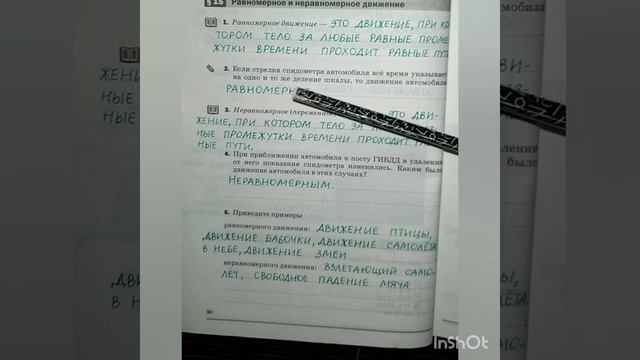 § 15 Равномерное и неравномерное движение
1. Равномерное движение — ЭТО ДВИЖЕНИЕ, ПРИ КО
ТОРОМ ТЕЛО ЗА ЛЮБЫЕ РАВНЫЕ ПРОМЕ
ЖУТКИ ВРЕМЕНИ ПРОХОДИТ РАВНЫЕ ПУТИ
2. Если стрелка спидометра автомобиля всё время указывает
на одно и то же деление шкалы, то движение автомобиля
РАВНОМЕРН
3. Неравномерное (переменное ЭТО ДВИ-
ЖЕНИЕ, ПРИ КОТОРОМ ТЕЛО ЗА
НЫЕ ПРОМЕЖУТКИ ВРЕМЕНИ ПРОХОДИТ
НЫЕ ПУТИ.
4. При приближении автомобиля к посту ГИБДД и удалении
от него показания спидометра изменились. Каким было
движение автомобиля в этих случаях?
НЕРАВНОМЕРНЫМ.
5. Приведите примеры
равномерного движения: ДВИЖЕНИЕ ПТИЦЫ,
ДВИЖЕНИЕ БАБОЧКИ, ДВИЖЕНИЕ САМОЛЁТА
В НЕБЕ, ДВИЖЕНИЕ ЗМЕИ
неравномерного движения: ВЗЛЕТАЮЩИЙ САМО-
ЛЁТ, СВОБОДНОЕ ПАДЕНИЕ МЯЧА
InShOt